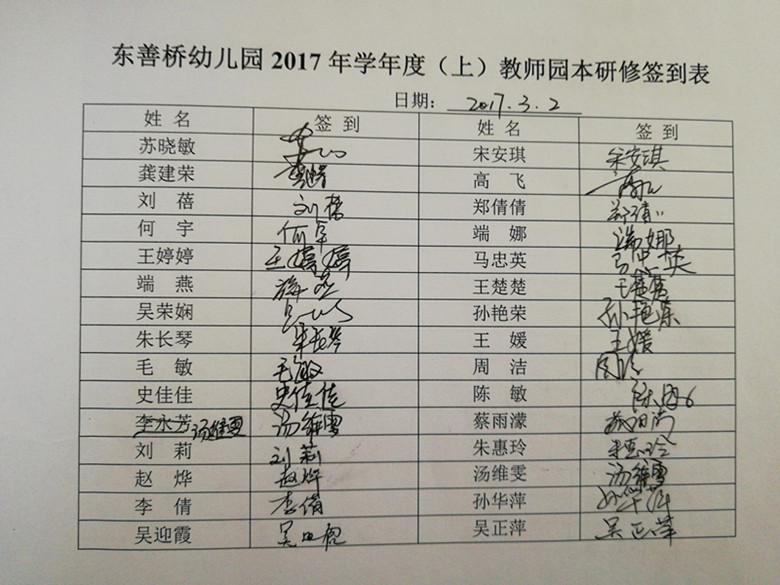 东善桥幼儿园 2017 年学年度（上）教师园本研修签到表
日期： 2017.3.2
姓 名 签 到 姓 名 签到
苏晓敏 宋安琪 宋安琪
龚建荣 高 飞
刘 蓓 刘蓓 郑倩倩
何 宇 何宇 端 娜 端娜
王婷婷 王婷婷 马忠英 马忠英
端 燕 端燕 王楚楚 王楚楚
吴荣娴 孙艳荣 孙艳荣
朱长琴 朱长琴 王 媛 王媛
毛 敏 毛敏 周 洁 周洁
史佳佳 史佳佳 陈 敏
李永芳 汤维雯 汤维雯 蔡雨濛
刘 莉 刘莉 朱惠玲 朱惠玲
赵 烨 赵烨 汤维雯 汤维雯
李 倩 李倩 孙华萍 孙华萍
吴迎霞 吴正萍 吴正萍